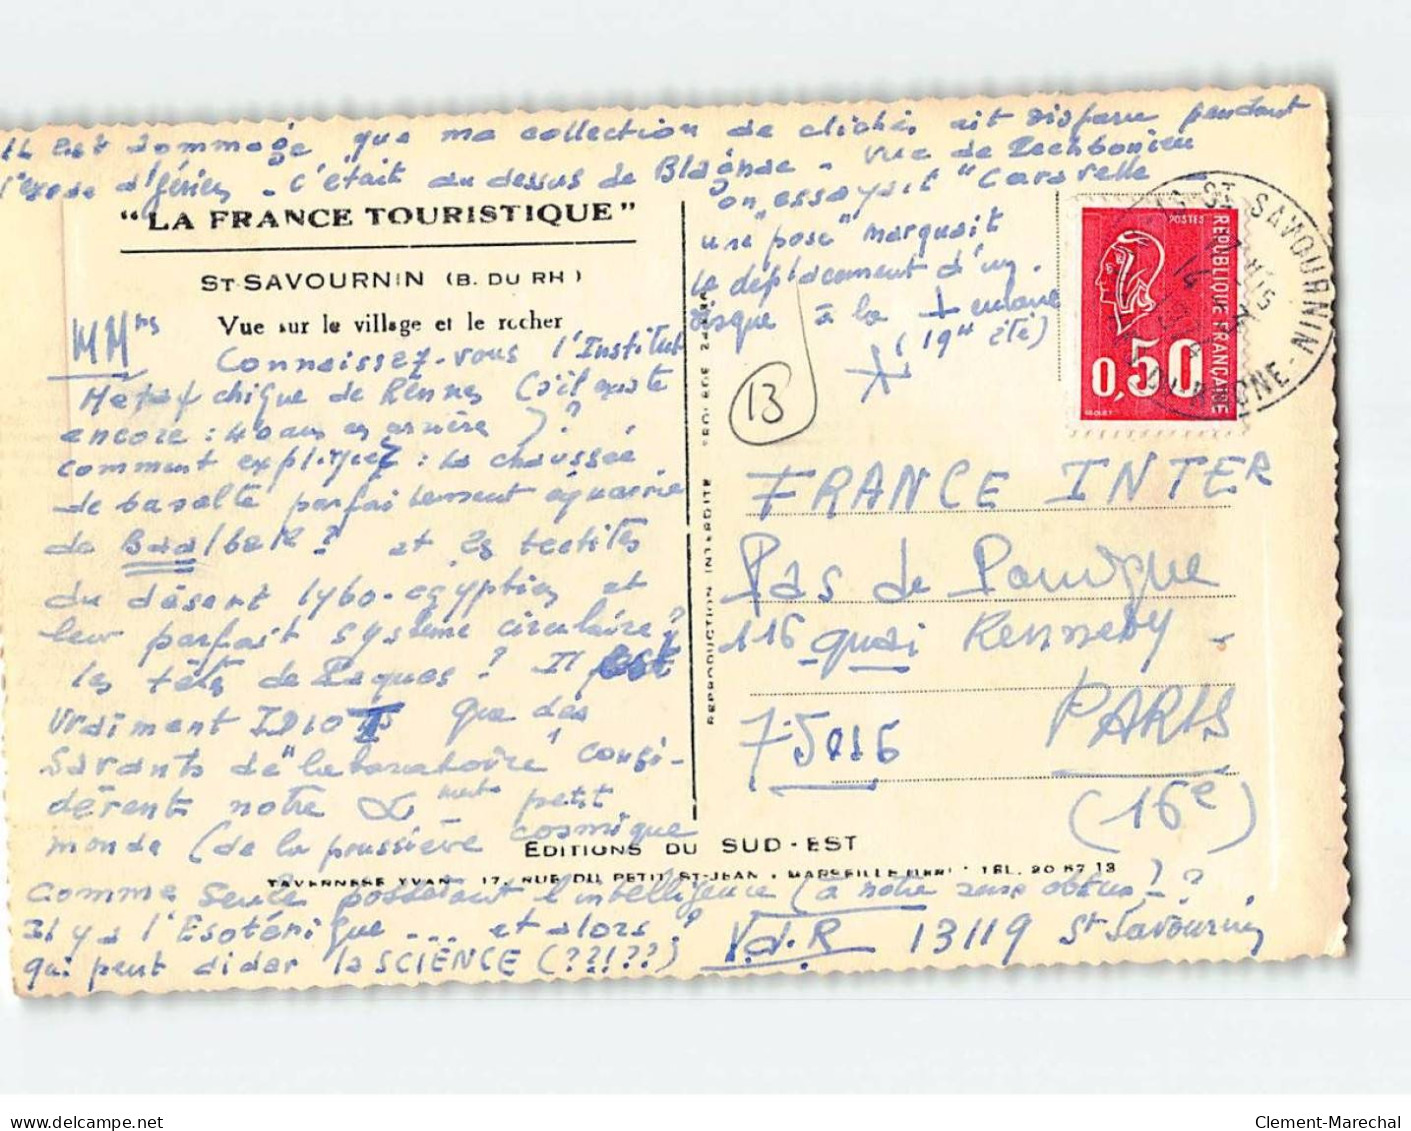 IL Est dommage que ma collection de clichés ait disparu pendant
l'exode d'Algérien - c'était au dessus de Blagnac - vue de
on essayait "Caravelle"
une "pose" marquait
le déplacement d'un
disque à la
(19 été)
"LA FRANCE TOURISTIQUE"
ST-SAVOURNIN (B. DU RH)
Vue sur le village et le rocher
MMrs
Connaissez-vous l'Institut
Métapsychique de Rennes (s'il existe
encore : 40 ans en arrière) ?
comment expliquez : la chaussée
de basalte parfaitement équarrie
de Baalbek ? et les tectites
du désert lybo-égyptien et
leur parfait système circulaire ?
les têtes de Paques ? Il est
vraiment IDIOT que des
savants de "laboratoire" consi-
dèrent notre petit
monde (de la poussière cosmique
comme seule possédant l'intelligence (à notre sens obtus) - ?
Il y a l'Esotérique ... et alors ?
qui peut dider la SCIENCE (??!??) V.d.R 13119 St Savournin
13
POSTES
REPUBLIQUE FRANÇAISE
0,50
ST SAVOURNIN
DU RHONE
FRANCE INTER
Pas de Panique
116 quai Kennedy -
PARIS
75016
(16e)
REPRODUCTION INTERDITE
EDITIONS DU SUD-EST
TAVERNESE YVAN - 17, RUE DU PETIT ST-JEAN - MARSEILLE - TEL. 20 67 13
www.delcampe.net
Clement-Marechal